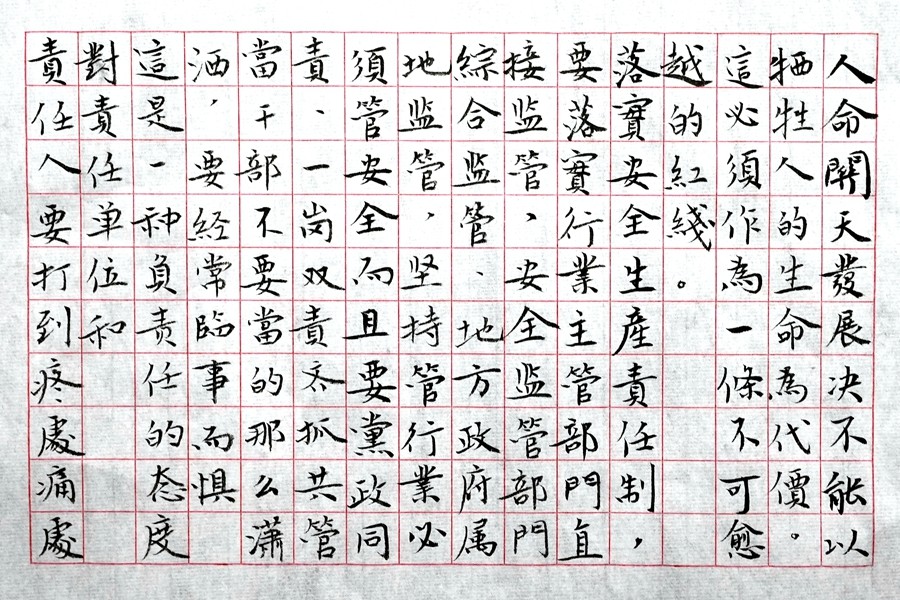 人命關天發展决不能以
牺牲人的生命為代價。
這必須作為一條不可愈
越的紅綫。
落實安全生産責任制，
要落實行業主管部門直
接监管、安全监管部門
綜合监管、地方政府属
地监管，坚持管行業必
須管安全而且要黨政同
責、一岗双責齐抓共管
當干部不要當的那么瀟
洒，要经常臨事而惧
這是一种負責任的态度
對責任单位和
責任人要打到疼處痛處